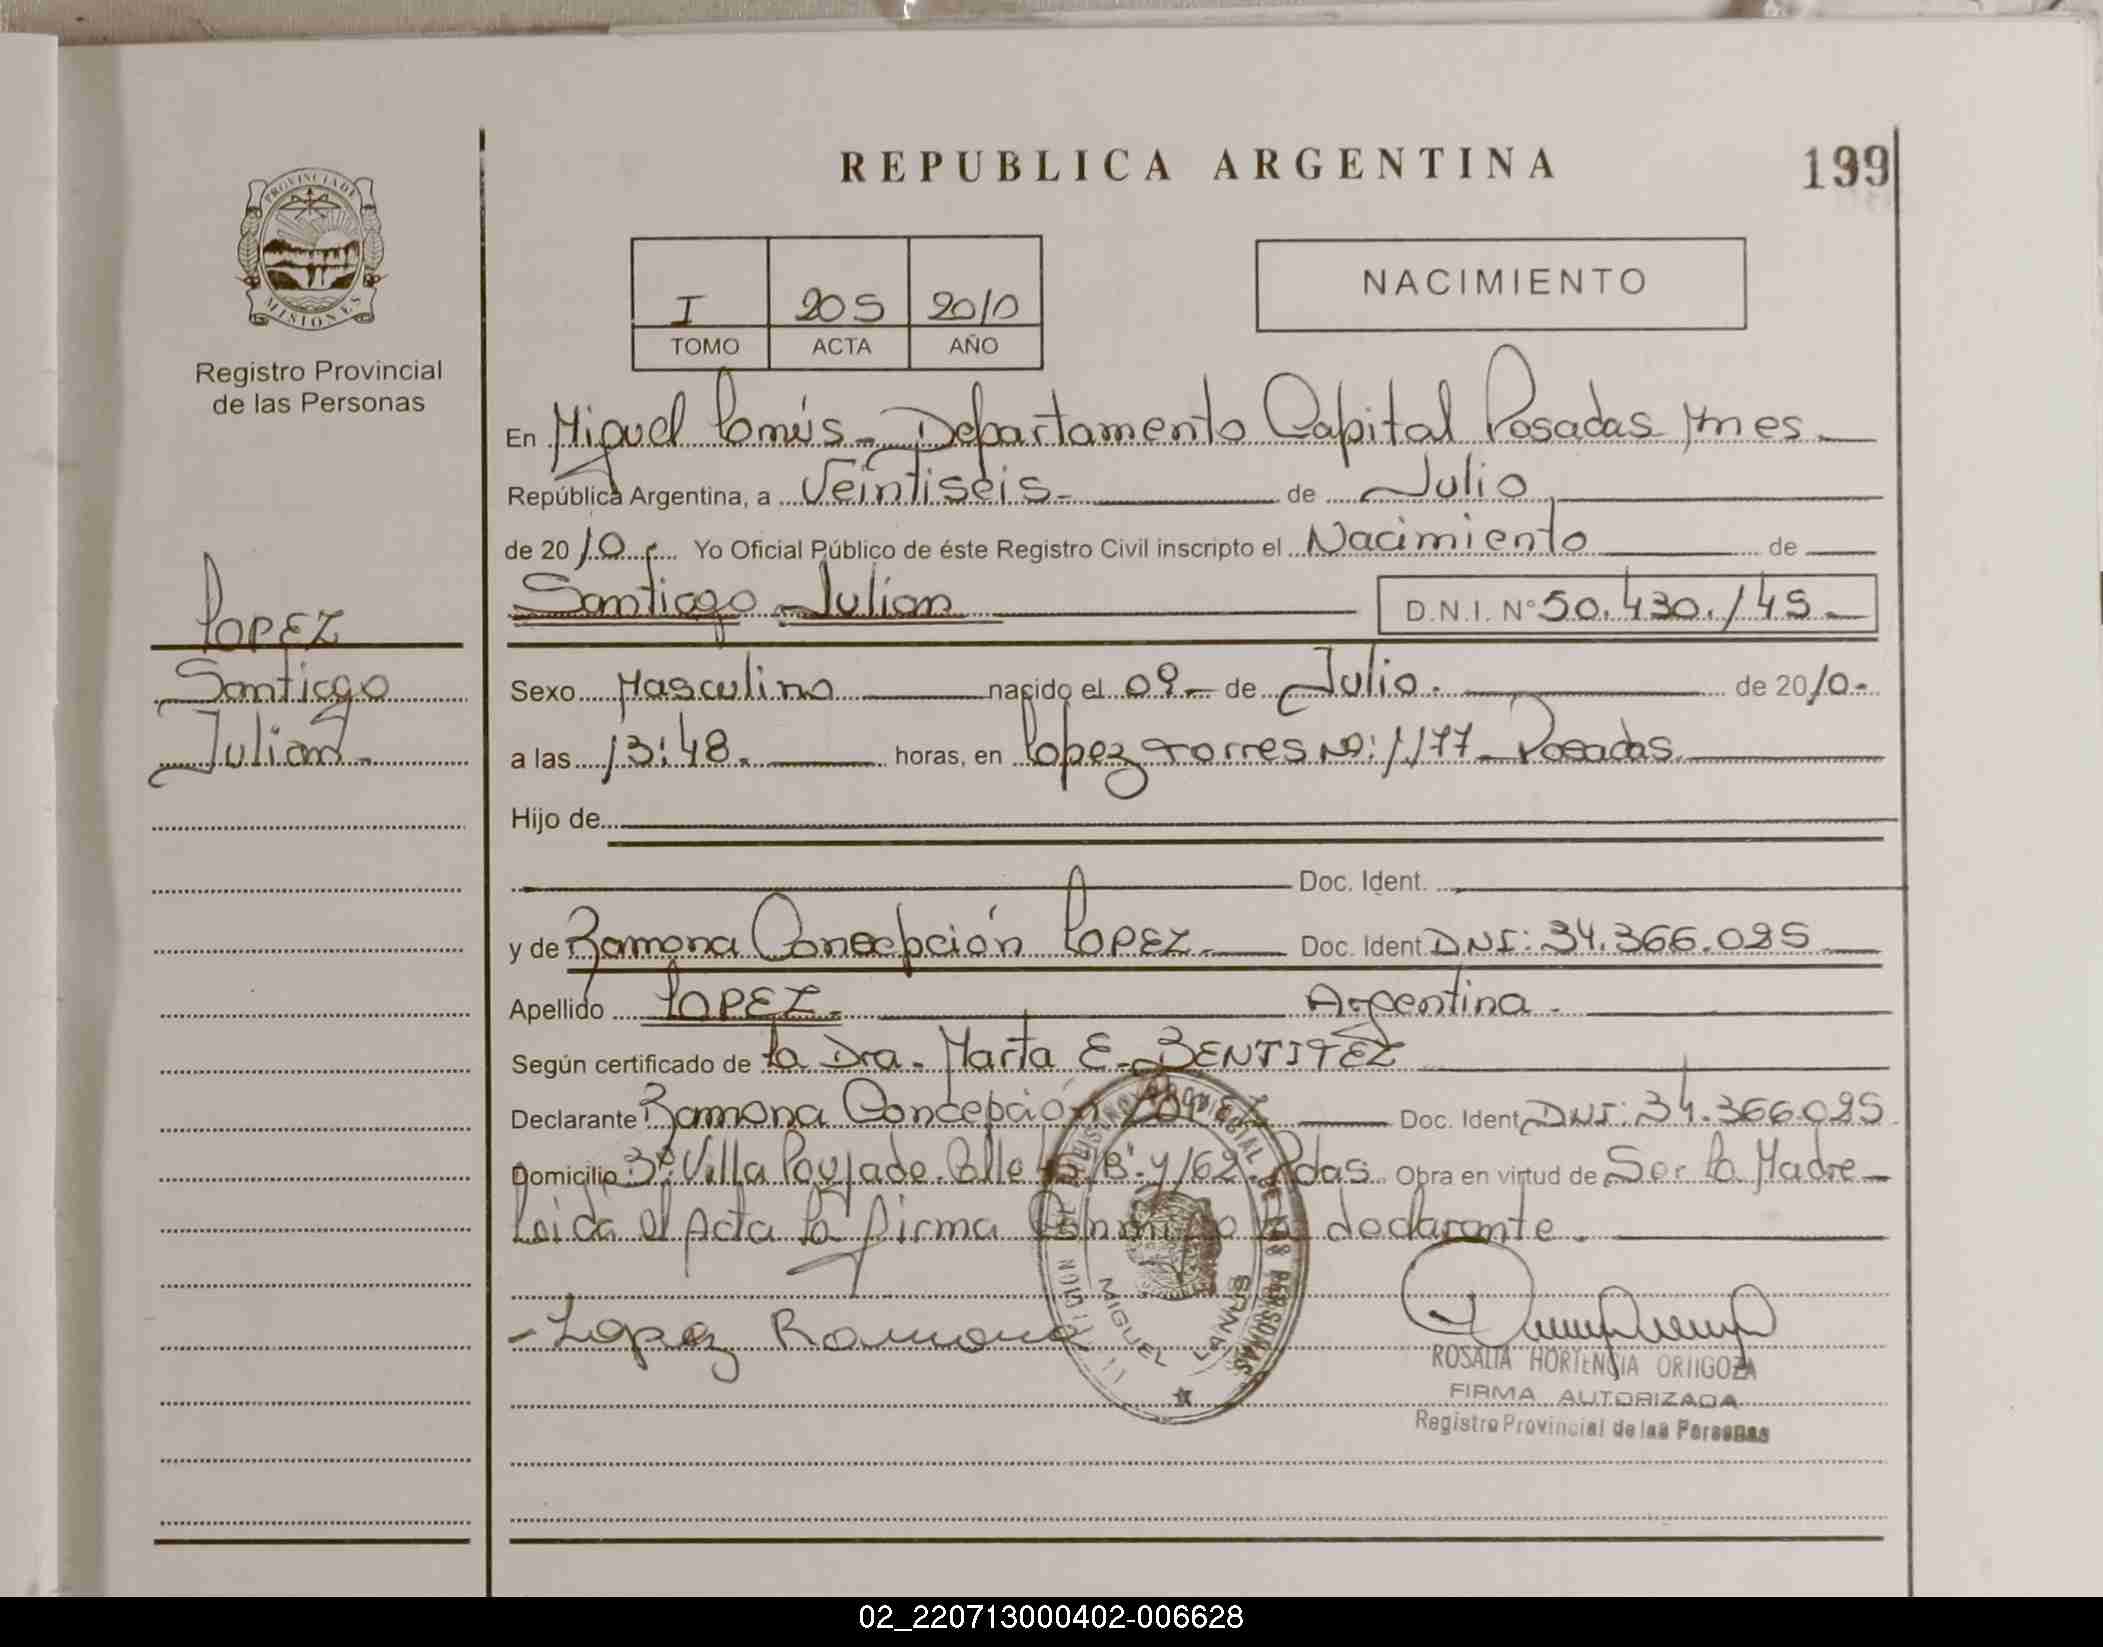 REPUBLICA ARGENTINA
199
PROVINCIA DE
MISIONES
Registro Provincial
de las Personas
I 205 2010
TOMO ACTA AÑO
NACIMIENTO
En Miguel Lanús - Departamento Capital Posadas Mnes.
República Argentina, a Veintiseis.- de Julio
de 2010.- Yo Oficial Público de éste Registro Civil inscripto el Nacimiento de
Santiago Julian D.N.I. Nº 50.430.145.-
LOPEZ
Santiago
Julian.-
Sexo Masculino nacido el 09.- de Julio. de 2010.-
a las 13:48. horas, en Lopez Torres Nº: 1.177 - Posadas.
Hijo de
Doc. Ident.
y de Ramona Concepción LOPEZ.- Doc. Ident. DNI: 34.366.025
Apellido LOPEZ.- Argentina.-
Según certificado de La Dra. Marta E. BENTITEZ
Declarante Ramona Concepción LOPEZ Doc. Ident. DNI: 34.366.025
Domicilio Bº Villa Poujade. Calle Pdas. Obra en virtud de Ser la Madre
Leida el Acta la firma Conmigo la declarante.
- Lopez Ramona
MIGUEL LANUS
REGISTRO PROVINCIAL DE LAS PERSONAS
ROSALIA HORTENCIA ORTIGOZA
FIRMA AUTORIZADA
Registro Provincial de las Personas
02_220713000402-006628